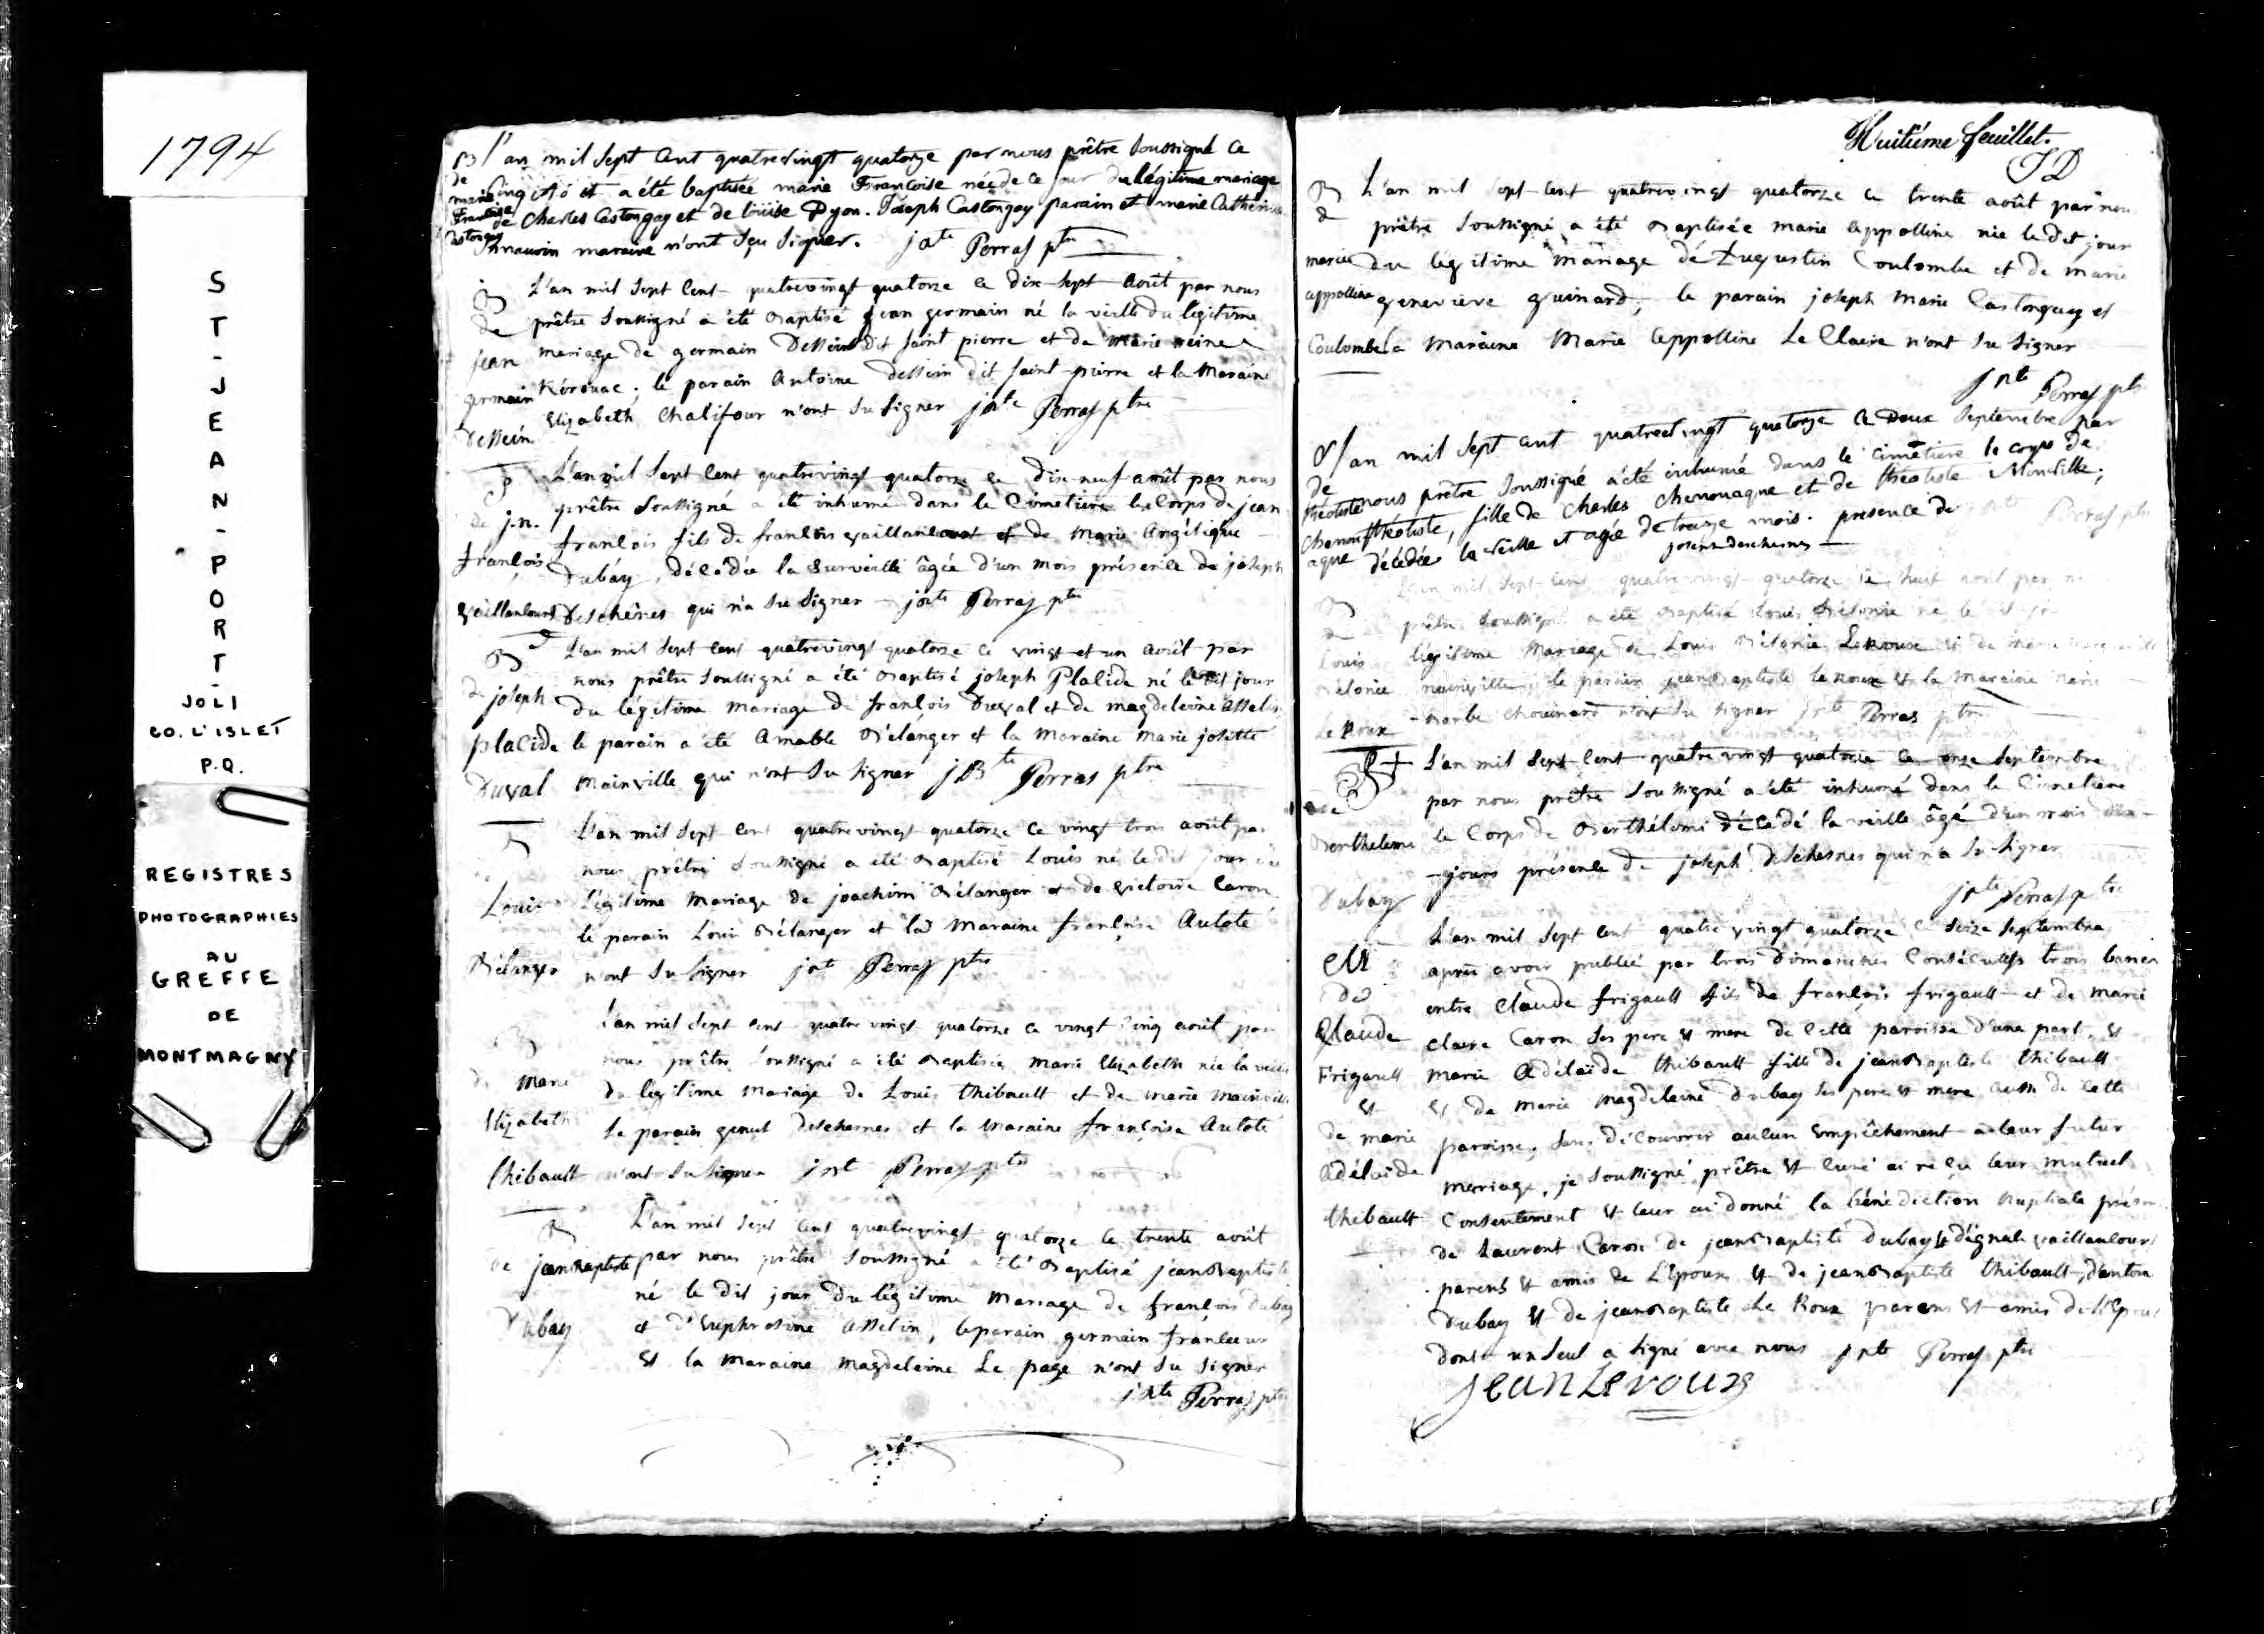 1794
S
T
-
J
E
A
N
-
P
O
R
T
-
JOLI
CO. L'ISLET
P.Q.
REGISTRES
PHOTOGRAPHIES
AU
GREFFE
DE
MONTMAGNY
B l'an mil sept cent quatrevingt quatorze par nous prêtre soussigné ce
de
marie
Francoise
Castonguay
cinq Aout a été baptisée marie Francoise née de ce jour du légitime mariage
de Charles Castonguay et de louise Dyon. Joseph Castonguay parain et marie Catherine
maraine n'ont sçu signer. jbte Perras ptre
B
de
jean
germain
Dessein
L'an mil sept cent quatrevingt quatorze le dix-sept août par nous
prêtre soussigné a été baptisé jean germain né la veille du légitime
mariage de germain Dessein dit saint pierre et de marie reine
Kérouac; le parain Antoine dessein dit saint-pierre et la Maraine
Elizabeth Chalifour n'ont su signer jbte Perras ptre
S
de j.n.
françois
Vaillancourt
L'an mil sept cent quatrevingt quatorze le dix-neuf août par nous
prêtre soussigné a été inhumé dans le Cimetiere le Corps de jean
françois fils de françois vaillancourt et de Marie Angélique
Dubay, décédée la surveille âgée d'un mois présence de joseph
deschênes qui n'a su signer jbte Perras ptre
B
de joseph
placide
Duval
L'an mil sept cent quatrevingt quatorze ce vingt-et-un août par
nous prêtre soussigné a été baptisé joseph Placide né le dit jour
du légitime mariage de françois Duval et de magdeleine Asselin
le parain a été Amable Bélanger et la Maraine Marie josette
Mainville qui n'ont su signer jBte Perras ptre
B
Louis
Bélanger
L'an mil sept cent quatrevingt quatorze ce vingt trois août par
nous prêtre soussigné a été baptisé Louis né le dit jour du
légitime mariage de joachim Bélanger et de victoire Caron
le parain Louis Bélanger et la Maraine françoise Autoté
n'ont su signer jbte Perras ptre
B
de Marie
Elizabeth
thibault
L'an mil sept cent quatre vingt quatorze ce vingt cinq août par
nous prêtre soussigné a été baptisée marie Elizabeth née la veille
du légitime mariage de Louis thibault et de marie mainville
le parain deschesnes et la maraine françoise Autoté
n'ont su signer jbte Perras ptre
B
de jeanbaptiste
Dubay
L'an mil sept cent quatrevingt quatorze le trente août
par nous prêtre soussigné a été baptisé jeanbaptiste
né le dit jour du légitime mariage de françois dubay
et d'Euphrosine Asselin, le parain germain francoeur
et la maraine magdeleine Le page n'ont su signer
jbte Perras ptre
Huitieme feuillet.
JD
B
de
marie
appolline
Coulombe
L'an mil sept-cent quatrevingt quatorze ce trente août par nous
prêtre soussigné a été baptisée marie appolline née le dit jour
du légitime mariage de Augustin Coulombe et de marie
geneviève guinard; le parain joseph marie Castonguay et
la maraine Marie Appolline Le Claire n'ont su signer
jbte Perras ptre
S
de
théotiste
Chenouaque
l'an mil sept cent quatrevingt quatorze ce Deux Septembre par
nous prêtre soussigné a été inhumé dans le cimetiere le corps de
théotiste, fille de Charles Chenouaque et de théotiste Minville,
décédée la veille et agée de treize mois. presence de
joseph deschesnes
Perras ptre
B
de
Louis
Bélonie
Le Roux
L'an mil sept cent quatrevingt quatorze le huit par
prêtre soussigné a été baptisé Louis Bélonie né le
légitime mariage de Louis Bélonie Leroux et de marie
mainville, le parain jeanbaptiste leroux et la maraine marie
barbe chouinard n'ont su signer jbte Perras ptre
S
de
Berthelemi
Dubay
L'an mil sept-cent quatrevingt quatorze ce onze septembre
par nous prêtre soussigné a été inhumé dans le Cimetiere
le Corps de Berthélemi décédé la veille âgé d'un mois
jours présence de joseph deschesnes qui n'a su signer
jbte Perras ptre
M
de
Claude
Frigault
et
de marie
Adélaide
thibault
L'an mil sept cent quatre vingt quatorze ce seize septembre
après avoir publié par trois dimanches Consécutifs trois bancs
entre Claude frigault fils de françois frigault et de marie
claire Caron ses pere et mere de Cette paroisse d'une part, et
marie Adélaïde thibault fille de jeanbaptiste thibault
et de marie magdeleine dubay ses pere et mere aussi de Cette
paroisse, sans découvrir aucun empêchement a leur futur
mariage, je soussigné prêtre et curé ai reçu leur mutuel
Consentement et leur ai donné la bénédiction nuptiale
de Laurent Caron de jeanbaptiste dubay et d'ignace vaillancourt
parens et amis de L'époux et de jeanbaptiste thibault,
Dubay et de jeanbaptiste Le Roux parens et amis de l'Epouse
dont un seul a signé avec nous jbte Perras ptre
Jean Leroux